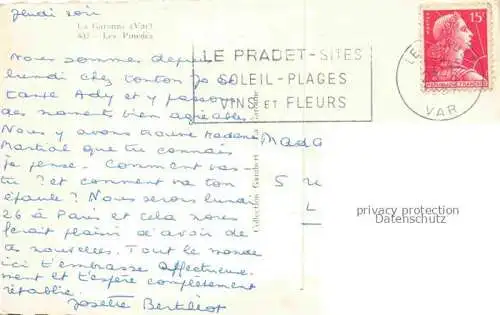 Jeudi soir
La Garonne (Var)
Les Pinèdes
Nous sommes depuis
lundi chez tonton Jo et
tante Ady et y passons
des moments bien agréables.
Nous y avons trouvé Madame
Martial que tu connais
je pense. Comment vas-
tu ? et comment va ton
épaule ? Nous serons lundi
26 à Paris et cela nous
ferait plaisir d'avoir de
tes nouvelles. Tout le monde
ici t'embrasse affectueuse-
ment et t'espère complètement
rétablie.
Josette
LE PRADET-SITES
SOLEIL-PLAGES
VINS ET FLEURS
LE
VAR
POSTES
15F
REPUBLIQUE FRANÇAISE
Collection Gambert La Garonne
Mada
S U
L
privacy protection
Datenschutz